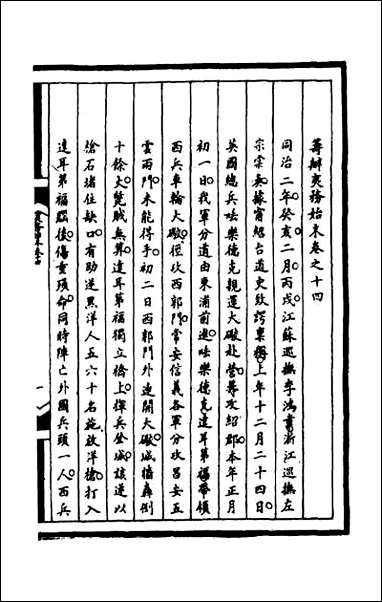 籌辦夷務始末卷之十四
同治二年癸亥二月丙戌江蘇巡撫李鴻章浙江巡撫左
宗棠奏據甯紹台道史致諤稟稱上年十二月二十四日
英國總兵呔樂德克親運大礮赴營籌攻紹郡本年正月
初一日我軍分道由東浦前進呔樂德克達耳第福帶領
西兵車輪大礮徑攻西郭門常安信義各軍分攻昌安五
雲兩門未能得手初二日西郭門外連開大礮城牆轟倒
十餘丈斃賊無算達耳第福獨立橋上揮兵登城該逆以
槍石堵住缺口有助逆黑洋人五六十名施放洋槍打入
達耳第福腦後傷重殞命同時陣亡外國兵頭一人西兵